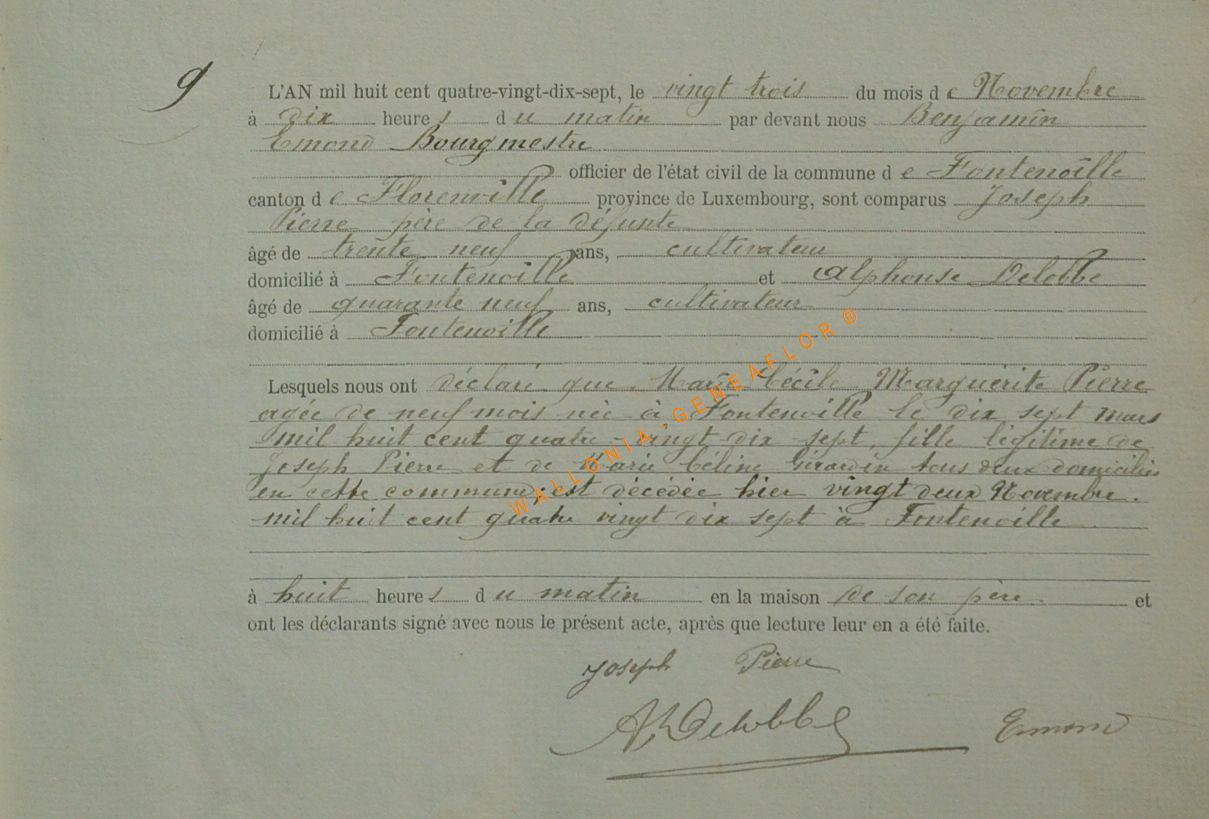 9
L'AN mil huit cent quatre-vingt-dix-sept, le vingt trois du mois de Novembre
à dix heures du matin par devant nous Benjamin
Emond Bourgmestre
officier de l'état civil de la commune de Fontenoille
canton de Florenville province de Luxembourg, sont comparus Joseph
Pierre père de la défunte
âgé de trente neuf ans, cultivateur
domicilié à Fontenoille et Alphonse Delobbe
âgé de quarante neuf ans, cultivateur
domicilié à Fontenoille
Lesquels nous ont déclaré que Marie Cécile Marguérite Pierre
agée de neuf mois née à Fontenoille le dix sept mars
mil huit cent quatre-vingt dix sept, fille légitime de
Joseph Pierre et de Marie Céline Girardin tous deux domiciliés
en cette commune, est décédée hier vingt deux Novembre
mil huit cent quatre vingt dix sept à Fontenoille
à huit heures du matin en la maison de son père et
ont les déclarants signé avec nous le présent acte, après que lecture leur en a été faite.
Joseph Pierre
A Delobbe Emond
WALLONIA-GENEAFLOR ®